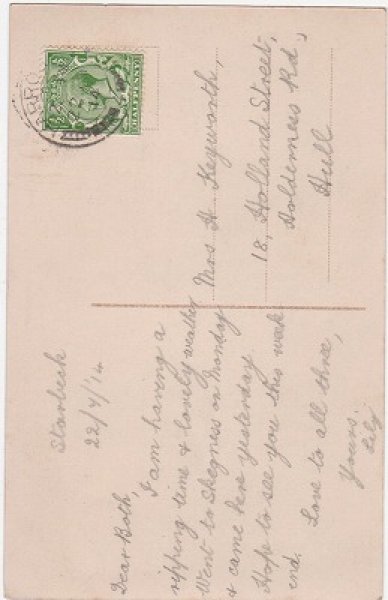 Starbeck
22/4/14
Dear Both,
I am having a
ripping time & lovely weather
Went to Skegness on Monday
& came here yesterday
Hope to see you this week
end.
Love to all three,
Yours.
Lily
Mrs H Keyworth,
18, Holland Street,
Holderness Rd,
Hull
HALFPENNY